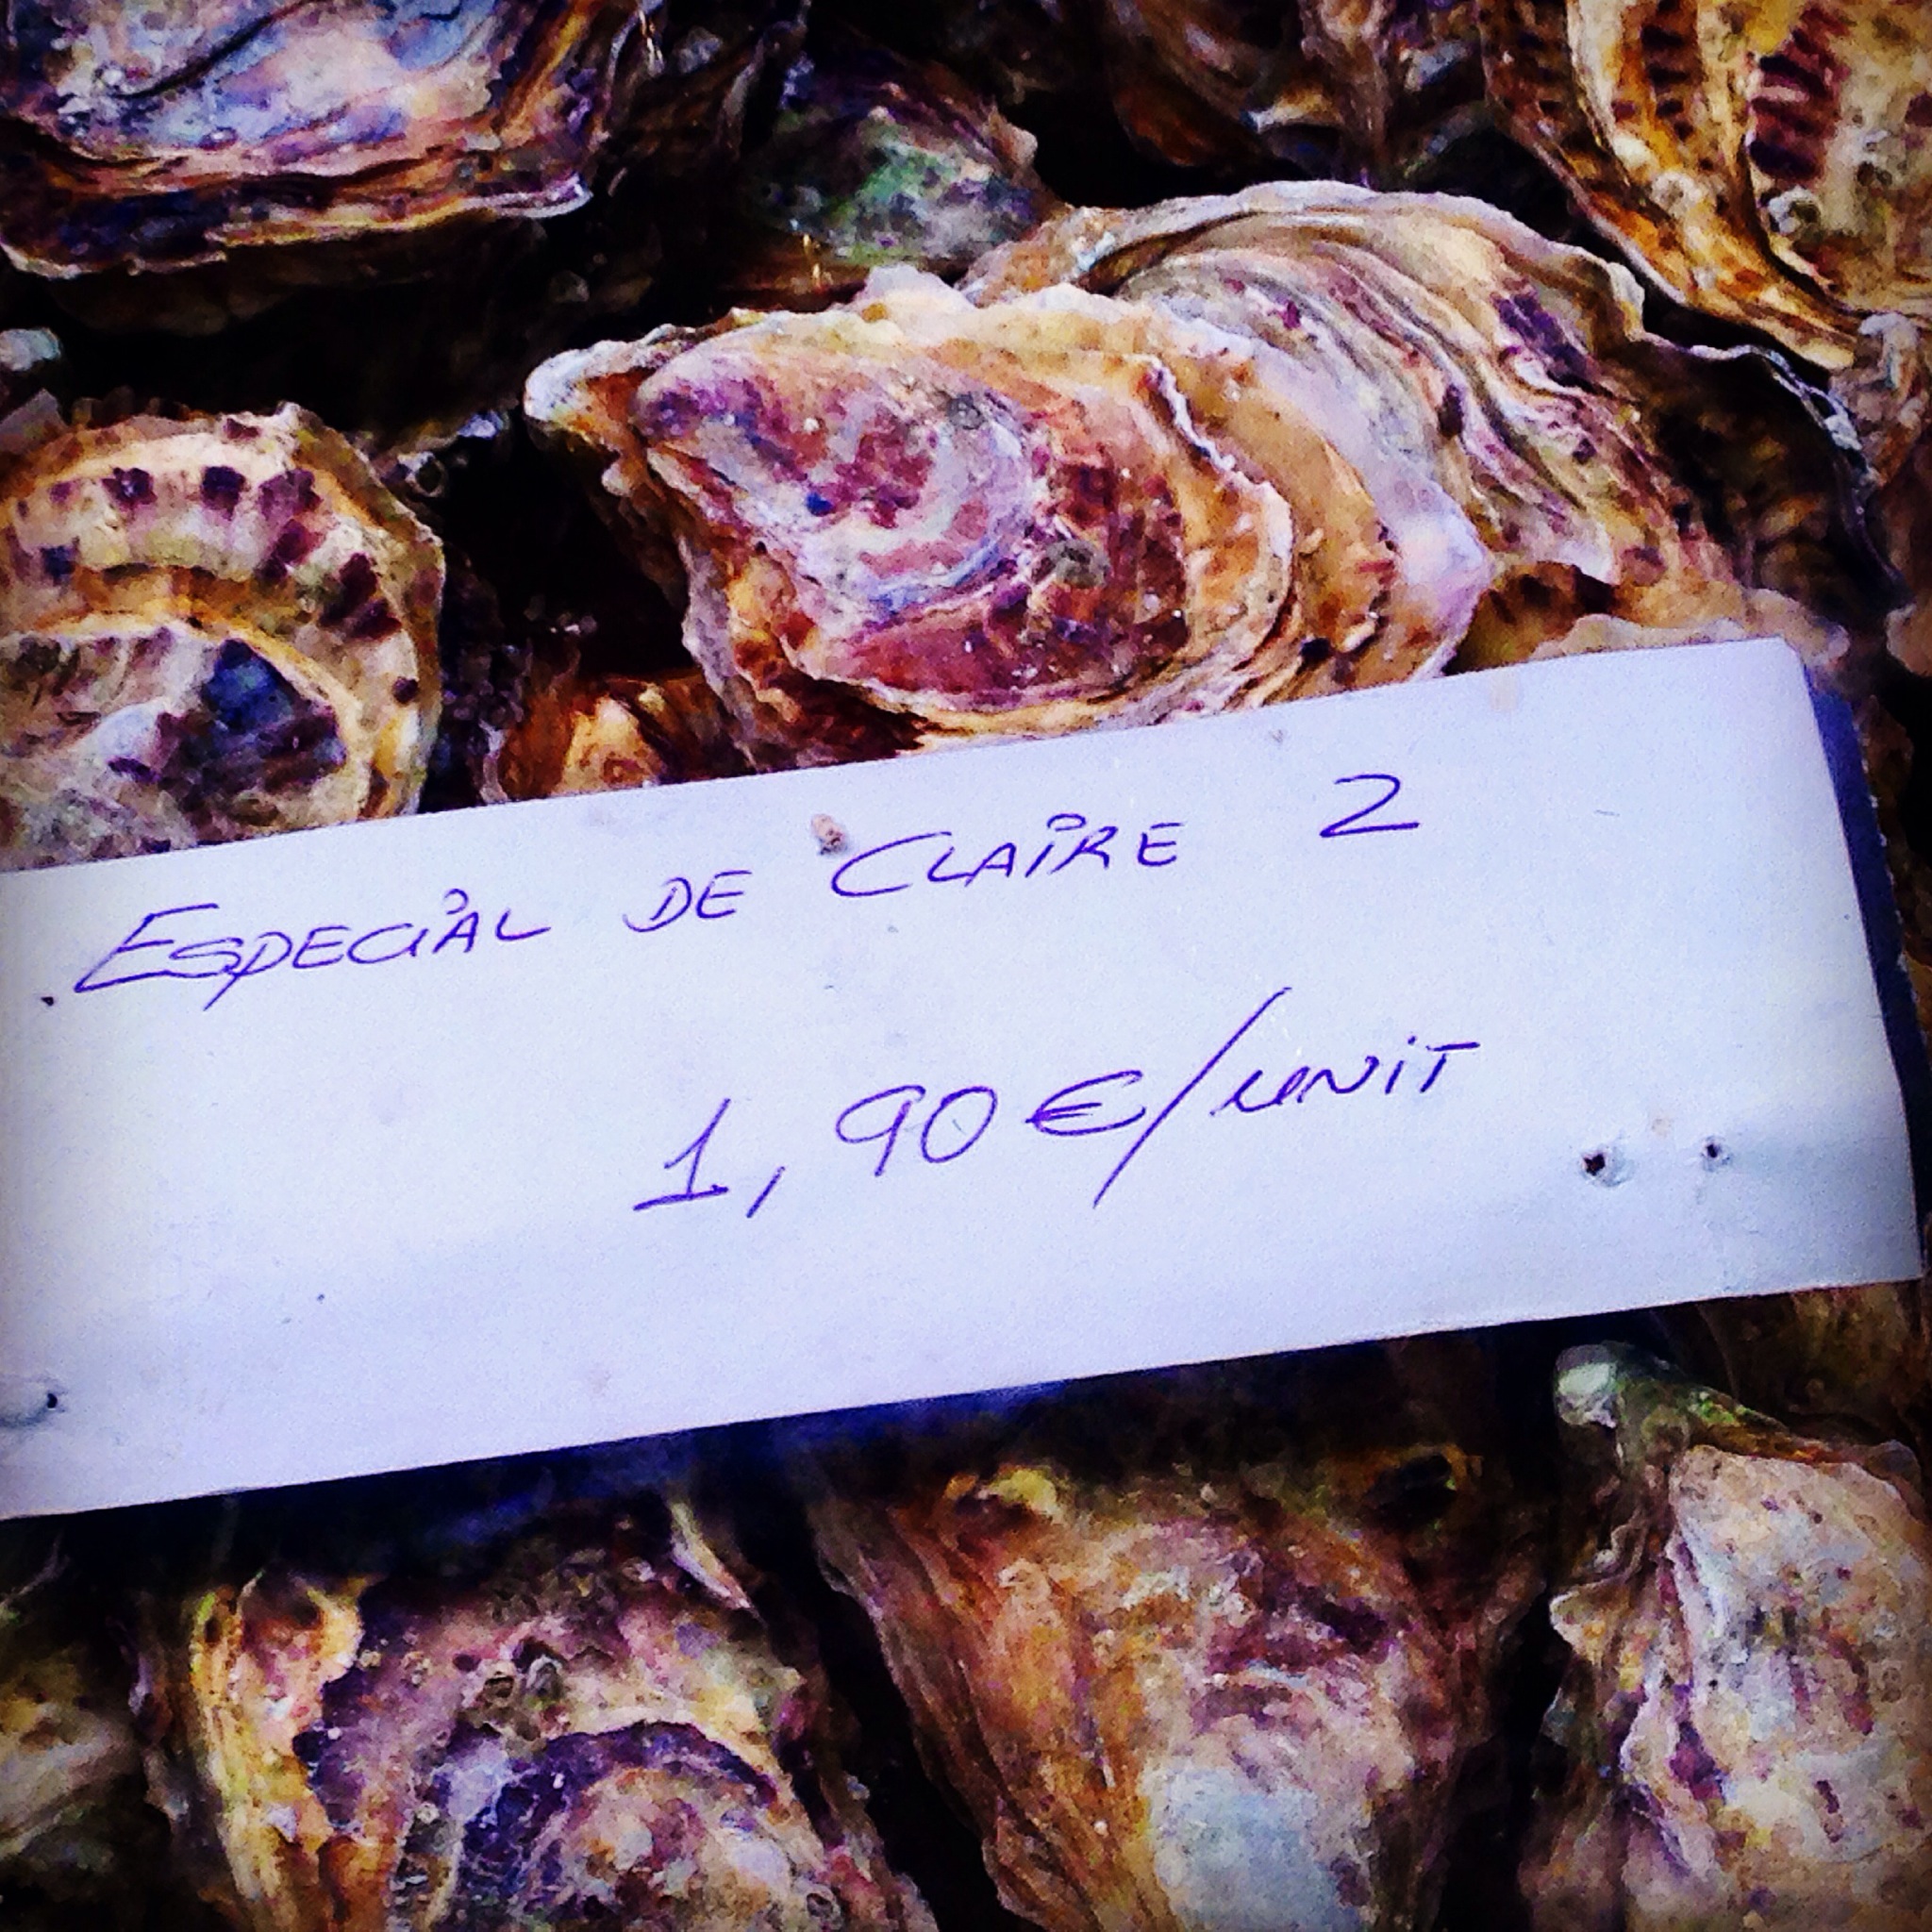 ESPECiAL DE CLAiRE 2
1,90€/UNiT